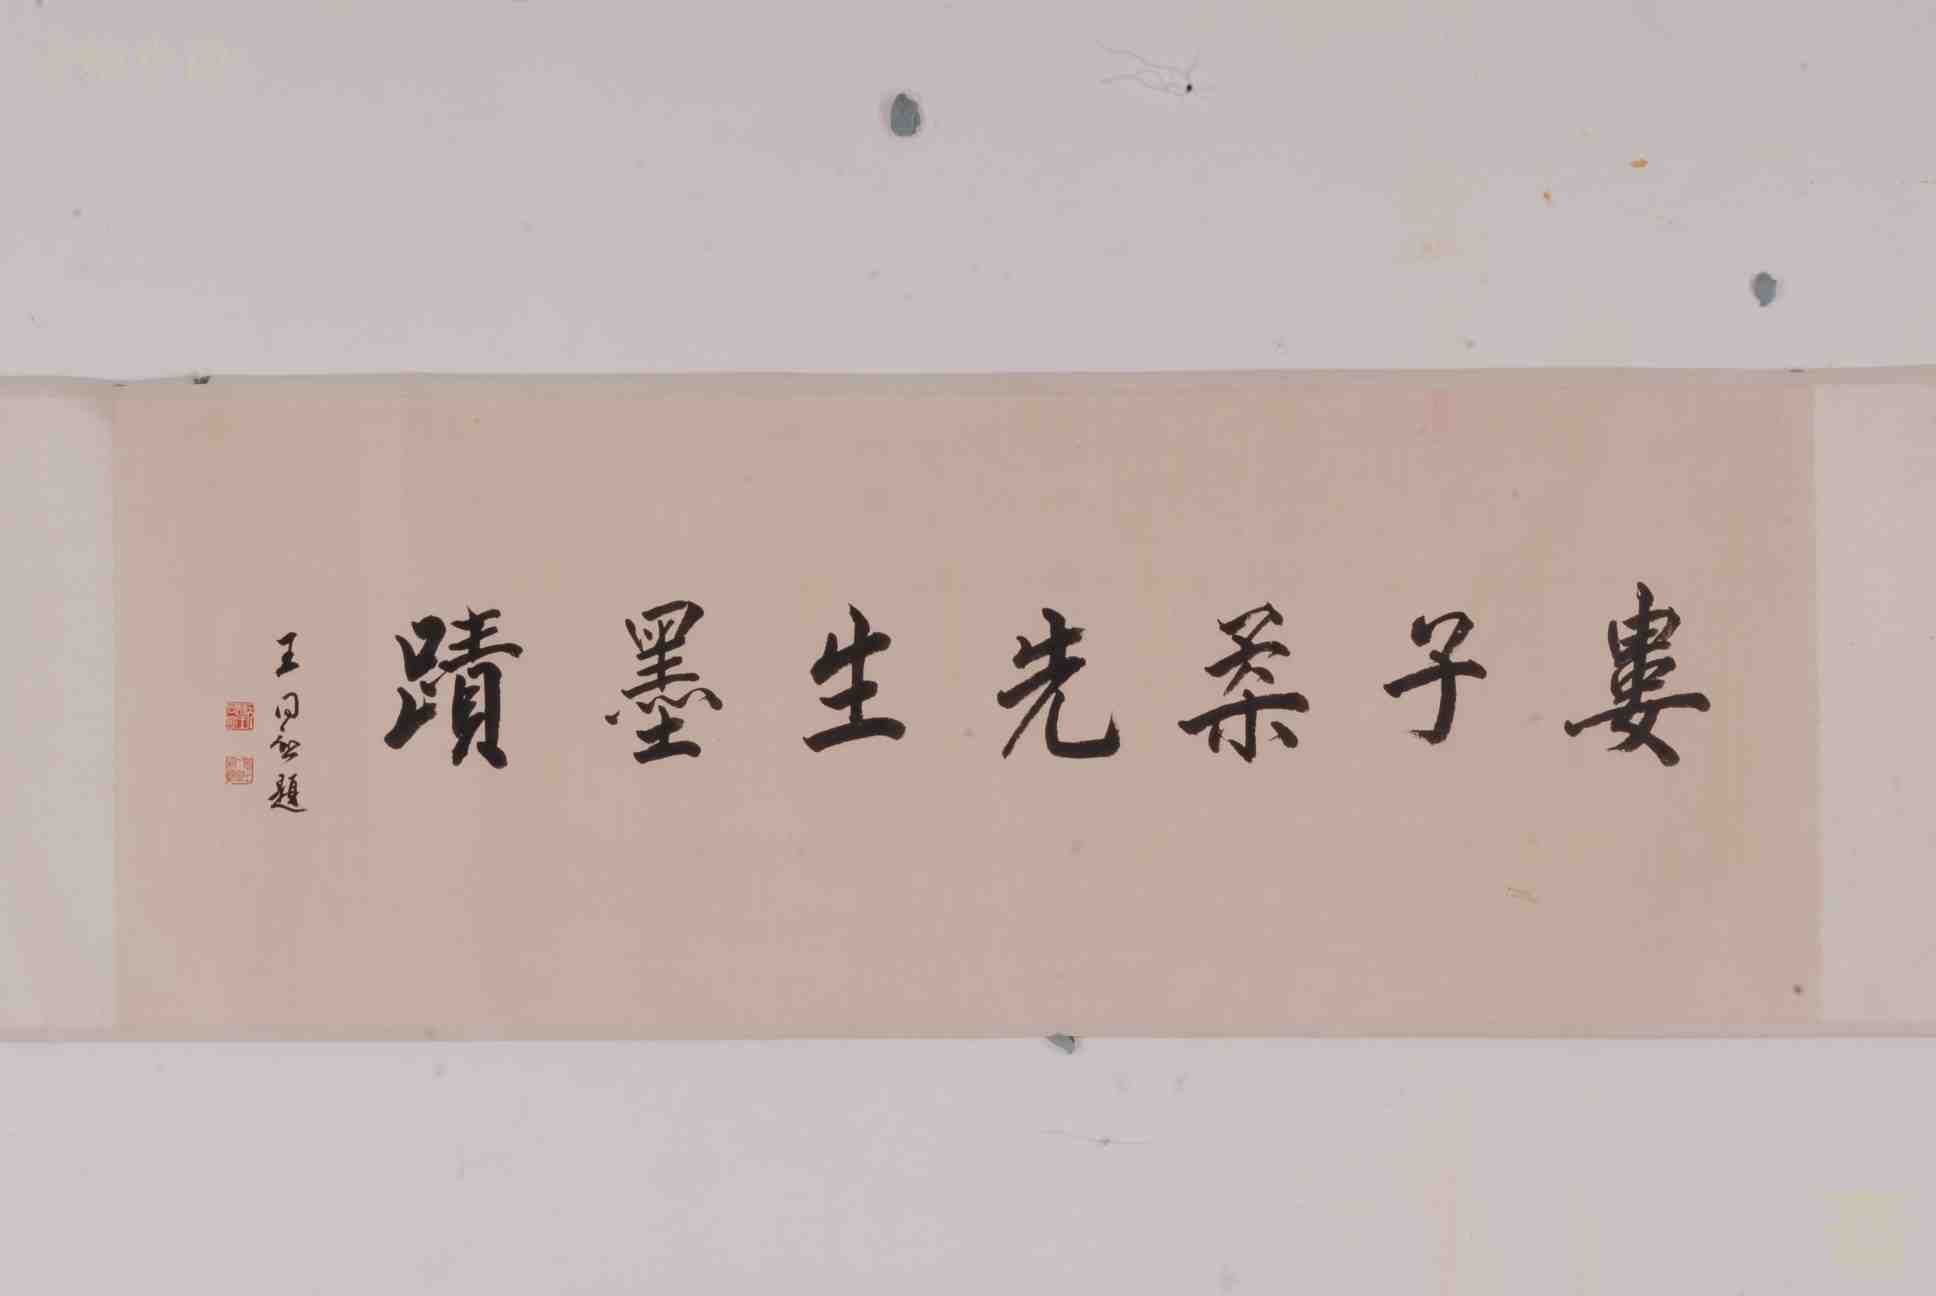 婁子柔先生墨蹟
王同愈題